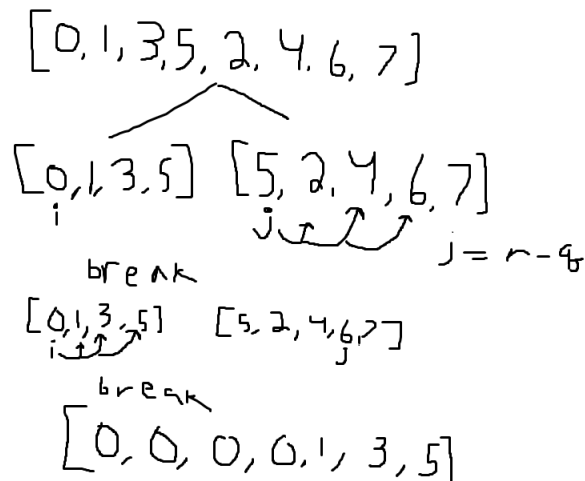 [0, 1, 3, 5, 2, 4, 6, 7]
[0, 1, 3, 5] [5, 2, 4, 6, 7]
i j
j = r - q
break
[0, 1, 3, 5] [5, 2, 4, 6, 7]
i j
break
[0, 0, 0, 0, 1, 3, 5]